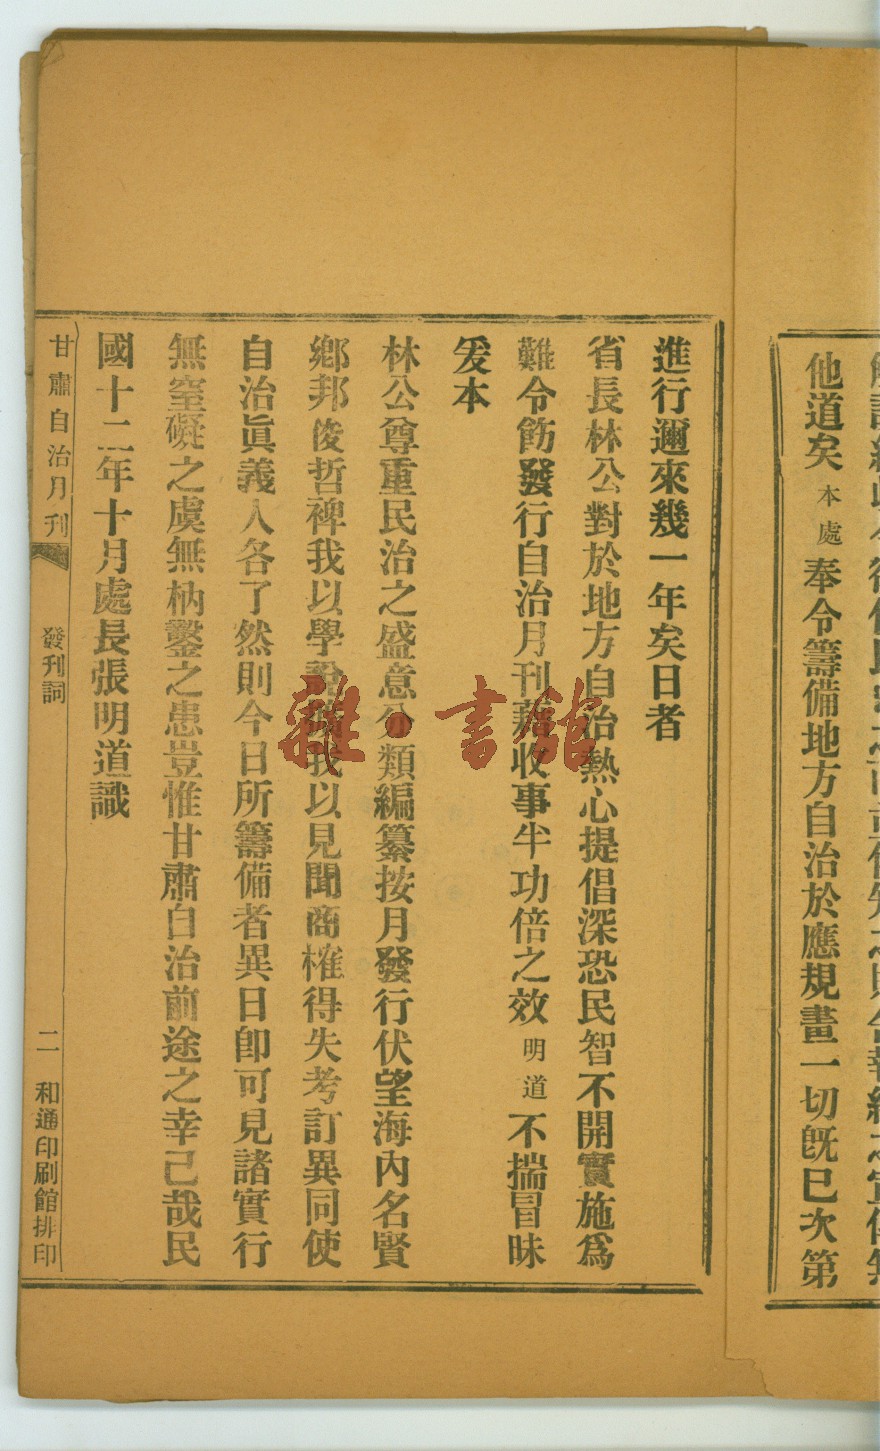 他道矣本處奉令籌備地方自治於應規畫一切旣已次第
進行邇來幾一年矣日者
省長林公對於地方自治熱心提倡深恐民智不開實施爲
難令飭發行自治月刊藉收事半功倍之效明道不揣冒昧
爰本
林公尊重民治之盛意分類編纂按月發行伏望海內名賢
鄉邦俊哲裨我以學說揚我以見聞商榷得失考訂異同使
自治眞義人各了然則今日所籌備者異日卽可見諸實行
無窒礙之虞無枘鑿之患豈惟甘肅自治前途之幸己哉民
國十二年十月處長張明道識
甘肅自治月刊
發刊詞
二
和通印刷館排印
雜·書館